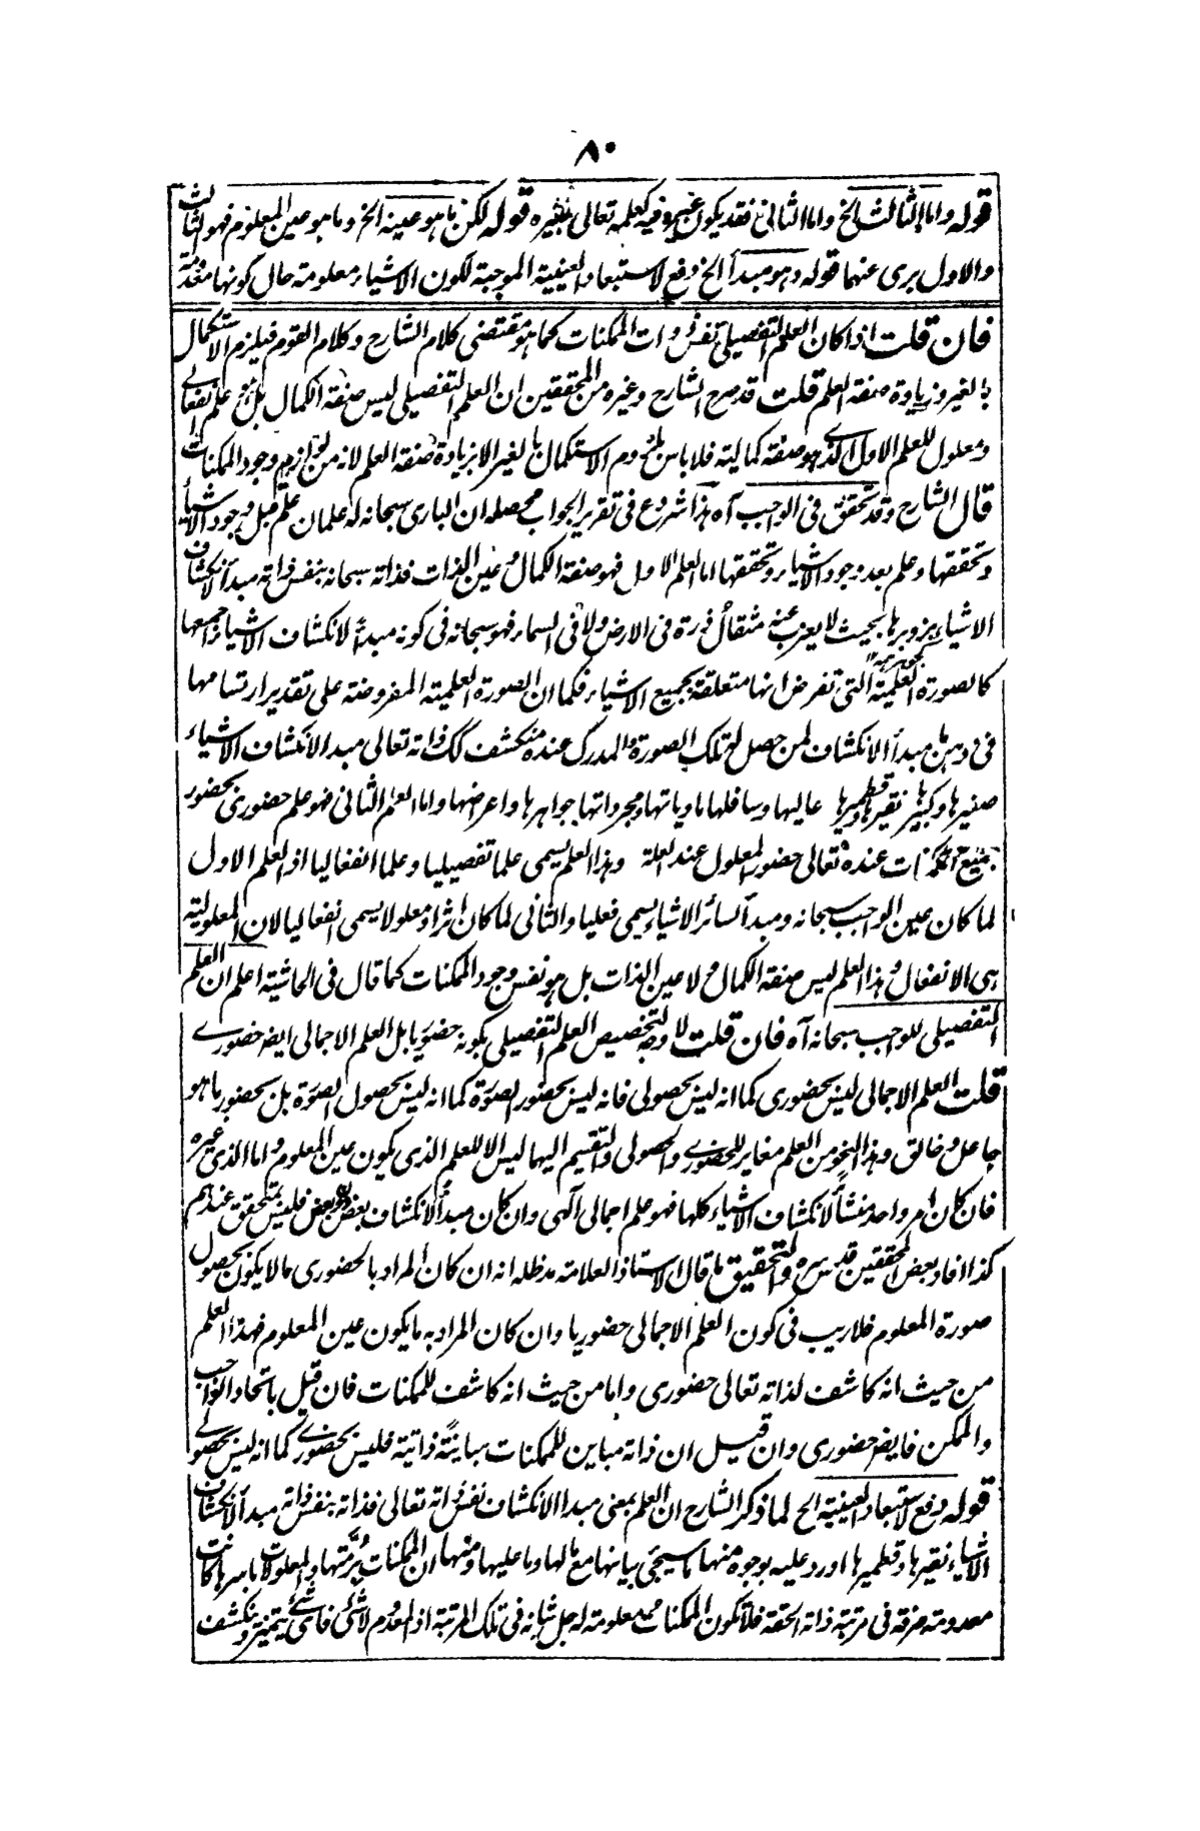 ٨٠
قوله واما الثالث الخ واما الثاني فقد يكون غيره وفيه كعلمه تعالى بغيره قوله لكن ما هو عينه الخ وما هو عين المعلوم فهو الثالث
والاول برى عنهما قوله وهو مبدأ الخ دفع لاستبعاد العينية الموجبة لكون الاشياء معلومة حال كونها معدومة
فان قلت اذا كان العلم التفصيلي نفس ذوات الممكنات كما هو مقتضى كلام الشارح وكلام القوم فيلزم الاستكمال
بالغير وزيادة صفة العلم قلت قد صرح الشارح وغيره من المحققين ان العلم التفصيلي ليس صفة الكمال بل هو علم انفعالي
ومعلول للعلم الاول الذي هو صفة كمالية فلا باس بلزوم الاستكمال بالغير الا بزيادة صفة العلم لانه من لوازم وجود الممكنات
قال الشارح وقد تحقق في الواجب آه هذا شروع في تقرير الجواب محصله ان الباري سبحانه له علمان علم قبل وجود الاشياء
وتحققها وعلم بعد وجود الاشياء وتحققها اما العلم الاول فهو صفة الكمال وعين الذات فذاته سبحانه بنفس ذاته مبدأ لانكشاف
الاشياء بزوبرها بحيث لا يعزب عنه مثقال ذرة في الارض ولا في السماء فهو سبحانه في كونه مبدأ لانكشاف الاشياء اجمعها
كالصورة العلمية التي تفرض انها متعلقة بجميع الاشياء فكما ان الصورة العلمية المفروضة على تقدير ارتسامها
في ذهن ما مبدأ الانكشاف لمن حصل له تلك الصورة والمدرك عنده منكشف كك ذاته تعالى مبدا لانكشاف الاشياء
صغيرها وكبيرها نقيرها وقطميرها عاليها وسافلها مادياتها ومجرداتها جواهرها واعراضها واما العلم الثاني فهو علم حضوري بحضور
جميع الممكنات عنده تعالى حضور المعلول عند العلة وهذا العلم يسمى علما تفصيليا وعلما انفعاليا اذ العلم الاول
لما كان عين الواجب سبحانه ومبدأ لسائر الاشياء يسمى فعليا والثاني لما كان اثرا ومعلولا يسمى انفعاليا لان المعلولية
هي الانفعال وهذا العلم ليس صفة الكمال ولا عين الذات بل هو نفس وجود الممكنات كما قال في الحاشية اعلم ان العلم
التفصيلي للواجب سبحانه آه فان قلت لا وجه لتخصيص العلم التفصيلي بكونه حضوريا بل العلم الاجمالي ايضا حضوري
قلت العلم الاجمالي ليس بحضوري كما انه ليس بحصولي فانه ليس بحضور الصورة كما انه ليس بحصول الصورة بل بحضور ما هو
جاعل وخالق وهذا النحو من العلم مغاير للحضوري والحصولي والتقسيم اليهما ليس الا للعلم الذي يكون عين المعلوم واما الذي غيره
فان كان امر واحد منشأ لانكشاف الاشياء كلها فهو علم اجمالي الهي وان كان مبدأ لانكشاف بعض دون بعض فليس بمتحقق عندهم
كذا افاد بعض المحققين قدس سره والتحقيق ما قال الاستاذ العلامة مد ظله انه ان كان المراد بالحضوري ما لا يكون بحصول
صورة المعلوم فلا ريب في كون العلم الاجمالي حضوريا وان كان المراد به ما يكون عين المعلوم فهذا العلم
من حيث انه كاشف لذاته تعالى حضوري واما من حيث انه كاشف للممكنات فان قيل باتحاد الواجب
والممكن فايضا حضوري وان قيل ان ذاته مباين للممكنات مباينة ذاتية فليس بحضوري كما انه ليس بحصولي
قوله دفع لاستبعاد العينية الخ لما ذكر الشارح ان العلم بمعنى مبدا الانكشاف نفس ذاته تعالى فذاته بنفس ذاته مبدأ لانكشاف
الاشياء نقيرها وقطميرها اورد عليه بوجوه منها ما سيجئ بيانها مع مالها وما عليها ومنها ان الممكنات برمتها والمعلولات باسرها كانت
معدومة صرفة في مرتبة ذاته الحقة فلا تكون الممكنات معلومة له جل شانه في تلك المرتبة اذ المعدوم لا شئ فاي شئ يتميز وينكشف